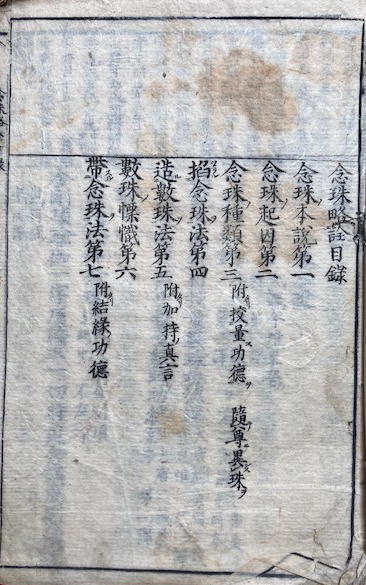 念珠略詮目録
念珠本說第一
念珠起因第二
念珠種類第三 附挍量功德 隨尊異珠
掐念珠法第四
造數珠法第五 附加持真言
數珠幖幟第六
帶念珠法第七 附結緣功德